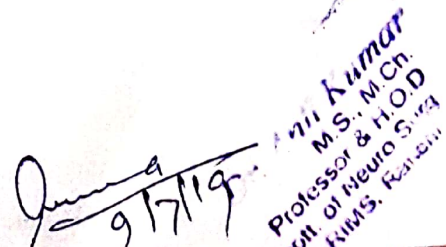 9/7/19
Kumar
M.S., M.Ch.
Professor & H.O.D
of Neuro Surg
RIMS, Ranchi